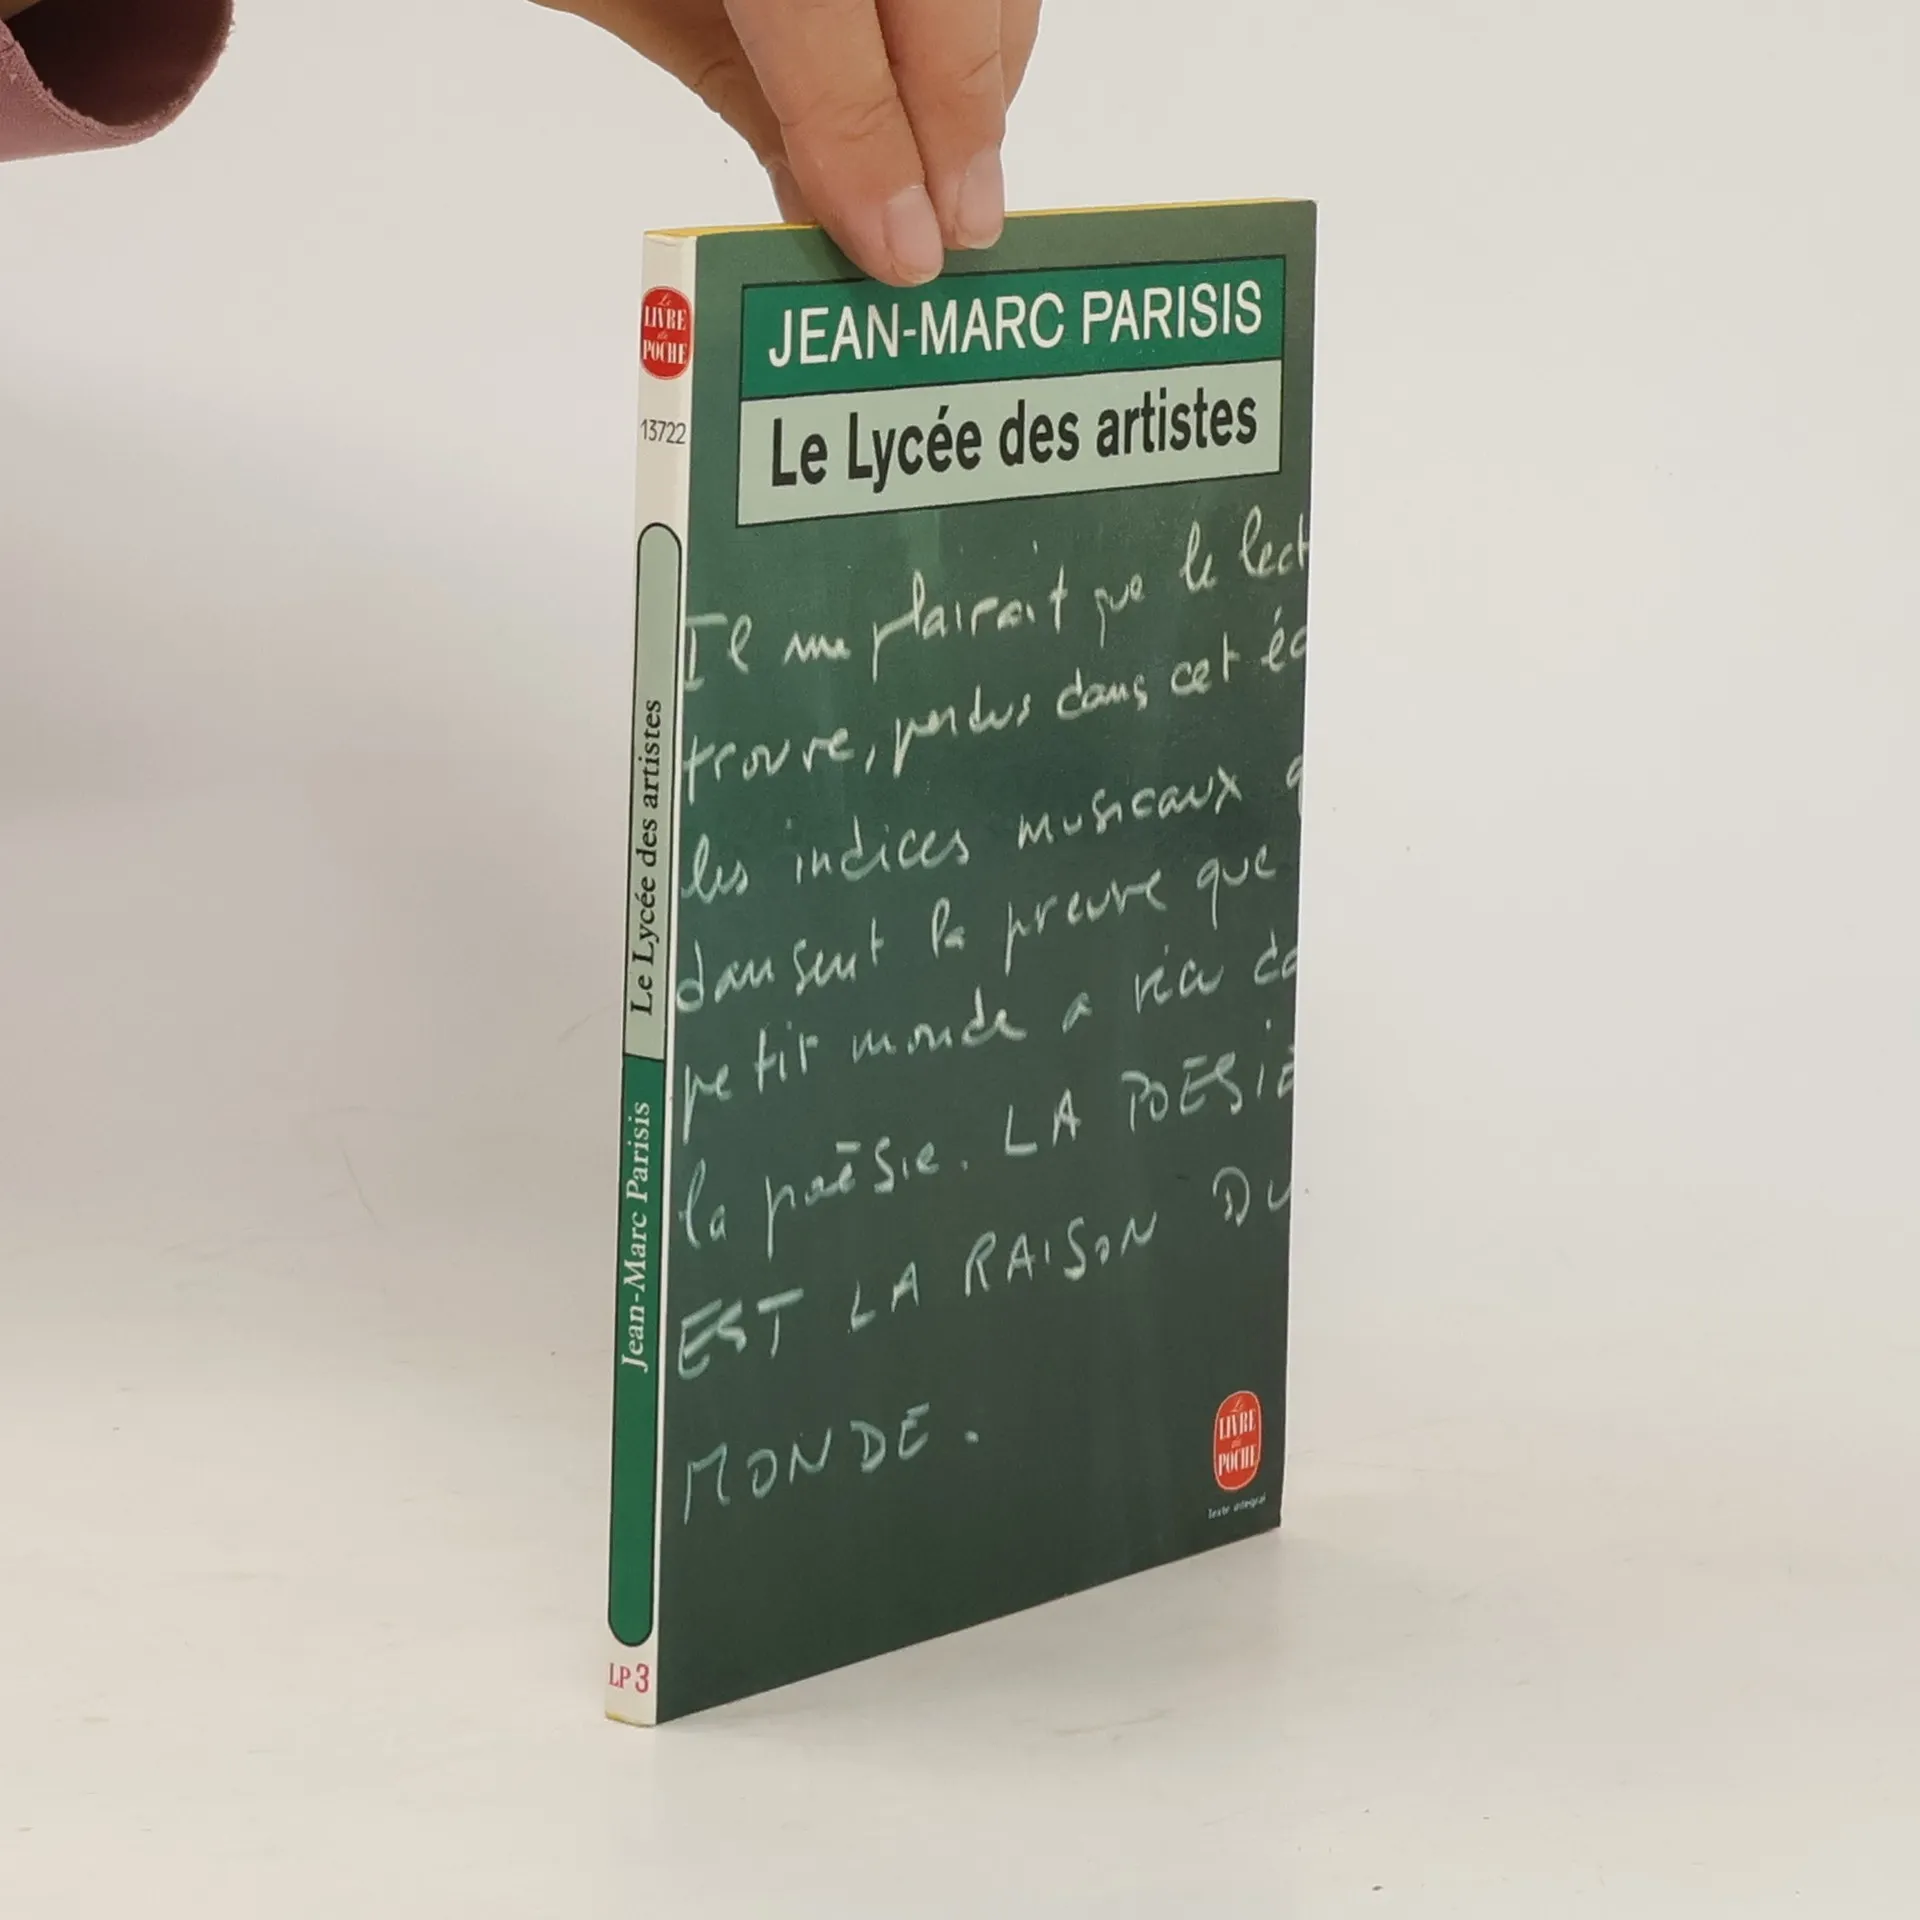 Le
LIVRE
de
POCHE
13722
Le Lycée des artistes
Jean-Marc Parisis
LP 3
JEAN-MARC PARISIS
Le Lycée des artistes
Il me plairait que le lect
trouve, perdus dans cet éc
les indices musicaux q
dansent la preuve que
petit monde a vécu da
la poésie. LA POÉSIE
EST LA RAISON DU
MONDE.
Le
LIVRE
de
POCHE
Texte intégral